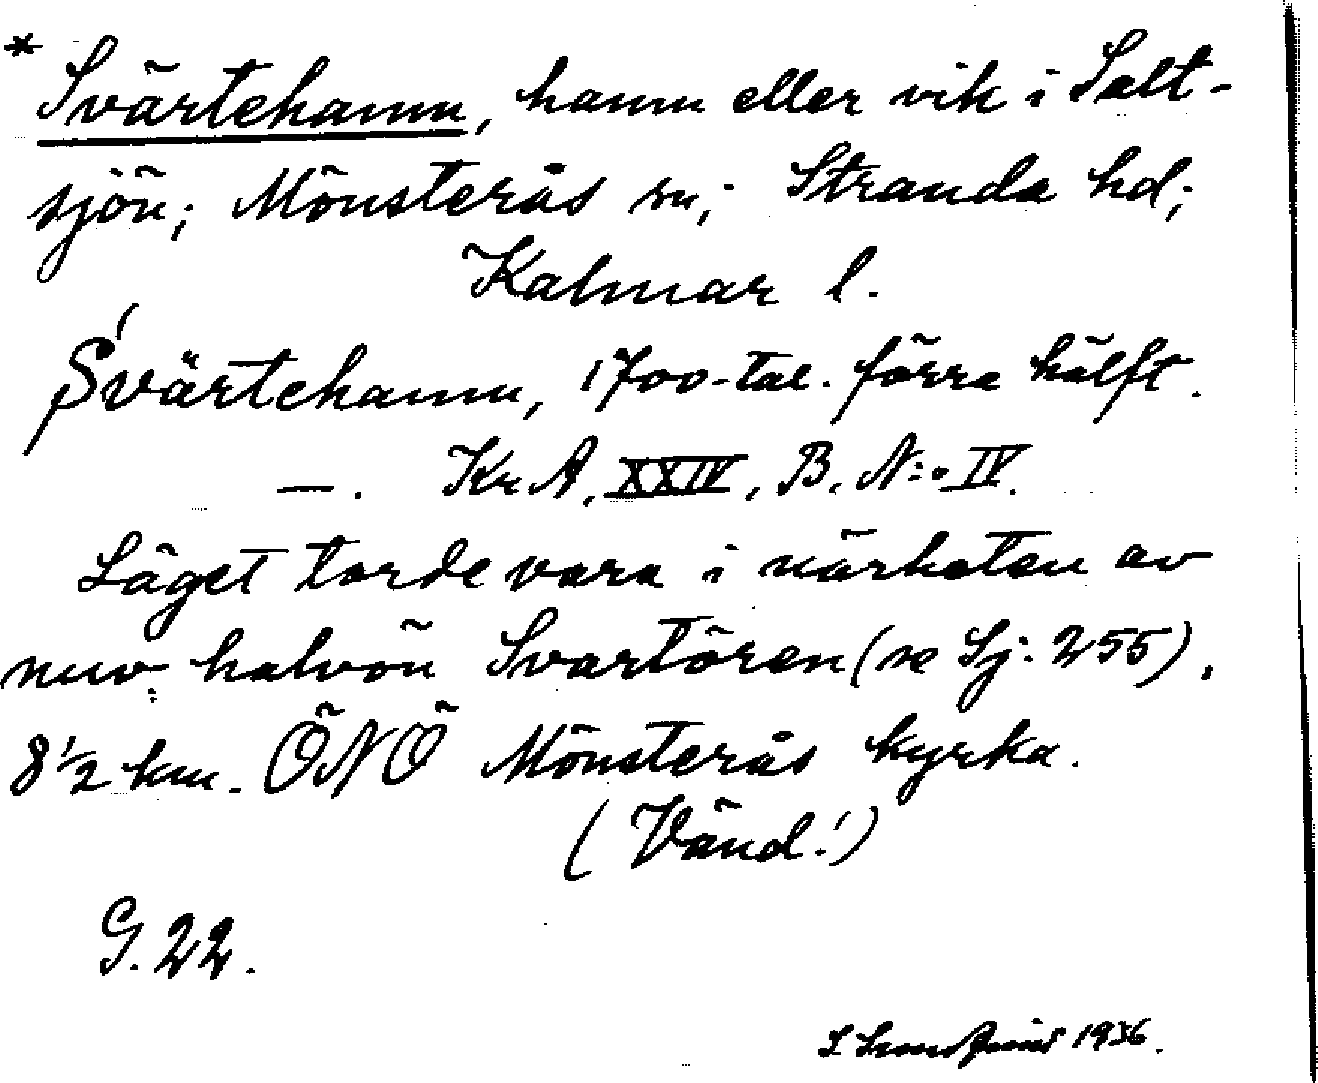 * Svärtehamn, hamn eller vik i Salt-
sjön; Mönsterås sn; Stranda hd;
Kalmar l.
Svärtehamn, 1700-tal. förra hälft.
—. KrA, XXIV, B, N:o IV.
Läget torde vara i närheten av
nuv. halvön Svartören (se Sj: 255).
8 1/2 km. ÖNÖ Mönsterås kyrka.
(Vänd!)
G. 22.
1936.